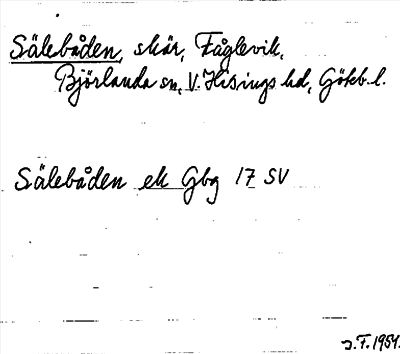 Sälebåden, skär, Fåglevik,
Björlanda sn, V. Hisings hd, Göteb. l.
Sälebåden ek Gbg 17 SV
J.F. 1954.